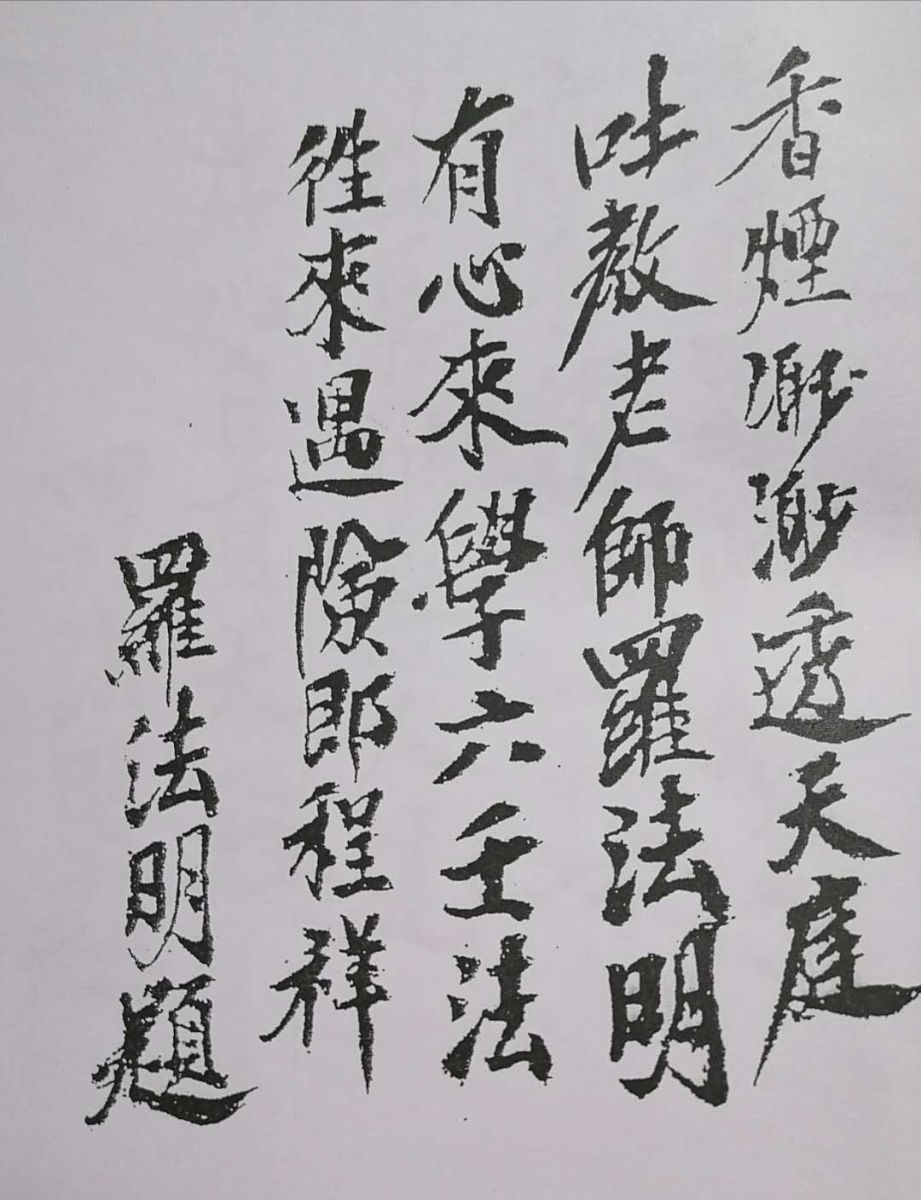 香煙漸漸透天庭
吐教老師羅法明
有心來學六壬法
往來遇險即程祥
羅法明題